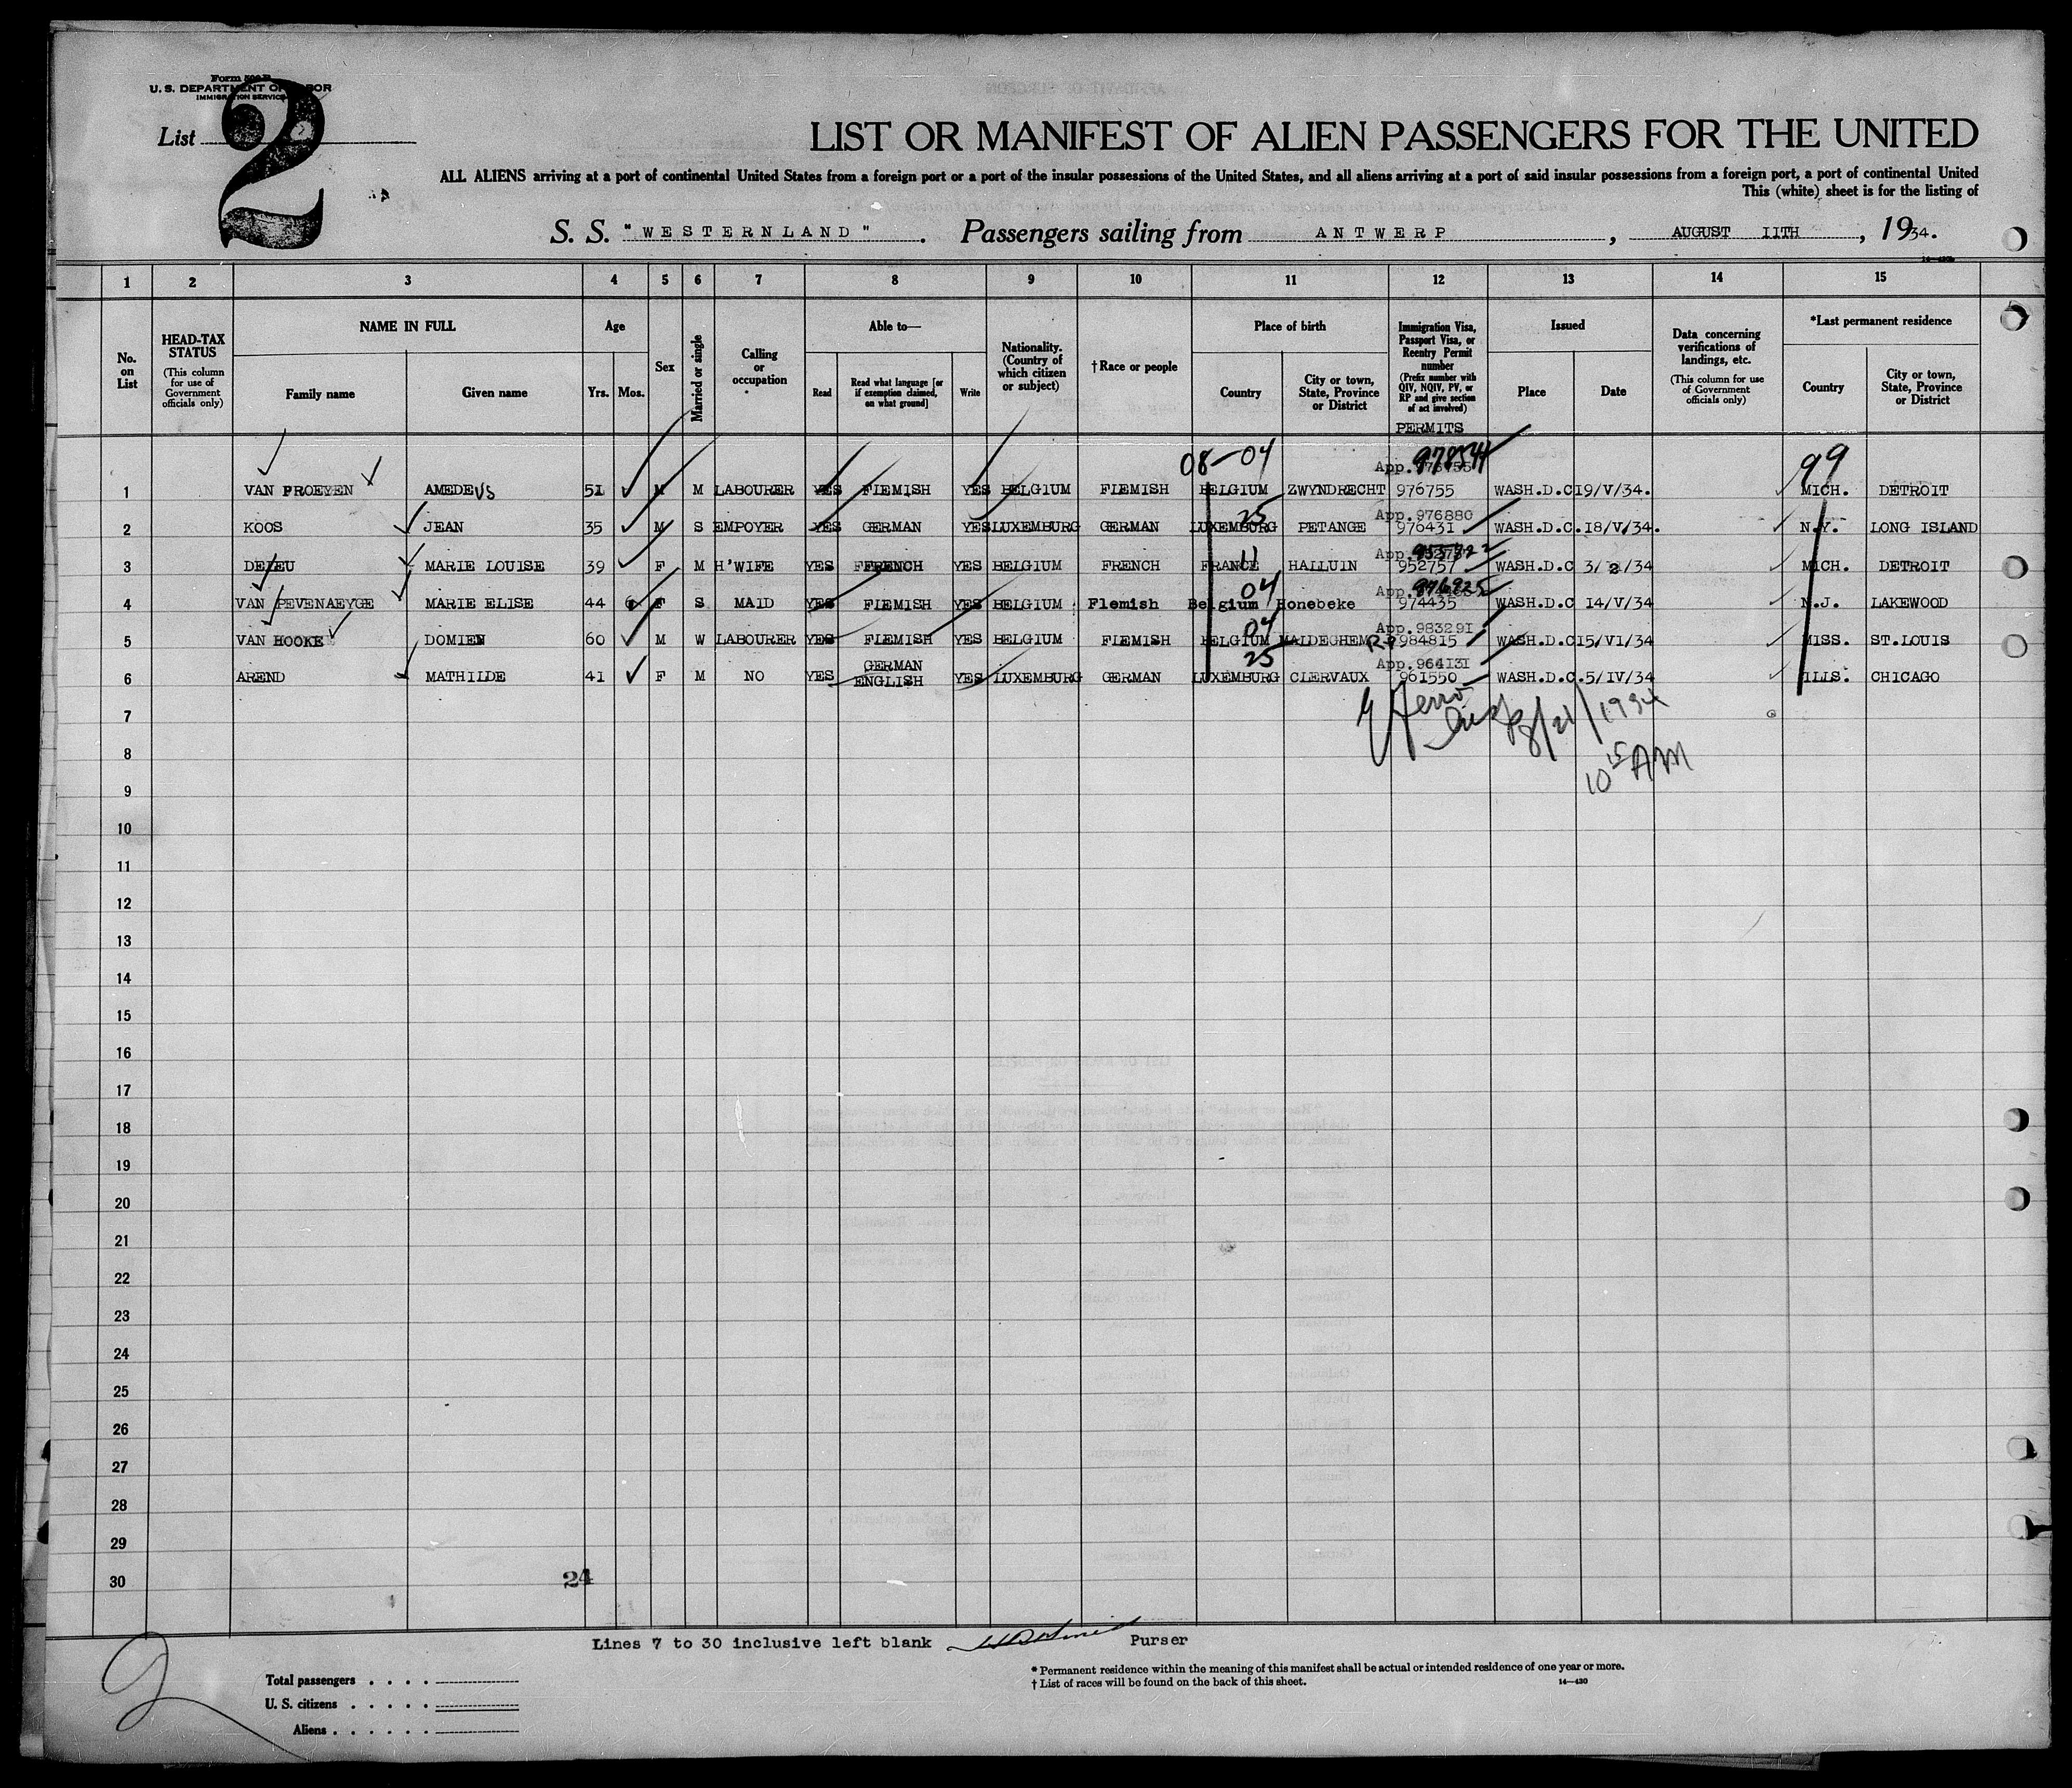 Form 500 B
U. S. DEPARTMENT OF LABOR
IMMIGRATION SERVICE
List 2
LIST OR MANIFEST OF ALIEN PASSENGERS FOR THE UNITED
ALL ALIENS arriving at a port of continental United States from a foreign port or a port of the insular possessions of the United States, and all aliens arriving at a port of said insular possessions from a foreign port, a port of continental United
This (white) sheet is for the listing of
S. S. "WESTERNLAND". Passengers sailing from ANTWERP, AUGUST 11TH, 1934.
1 2 3 4 5 6 7 8 9 10 11 12 13 14 15
No. on List
HEAD-TAX STATUS (This column for use of Government officials only)
NAME IN FULL
Family name Given name
Age
Yrs. Mos.
Sex
Married or single
Calling or occupation
Able to—
Read Read what language [or if exemption claimed, on what ground] Write
Nationality. (Country of which citizen or subject)
† Race or people
Place of birth
Country City or town, State, Province or District
Immigration Visa, Passport Visa, or Reentry Permit number (Prefix number with QIV, NQIV, PV, or RP and give section of act involved)
PERMITS
Issued
Place Date
Data concerning verifications of landings, etc. (This column for use of Government officials only)
*Last permanent residence
Country City or town, State, Province or District
08-04 App. 99
1 VAN PROEYEN AMEDEUS 51 M M LABOURER YES FLEMISH YES BELGIUM FLEMISH BELGIUM ZWYNDRECHT 976755 WASH.D.C 19/V/34. MICH. DETROIT
25 App.976880
2 KOOS JEAN 35 M S EMPOYER YES GERMAN YES LUXEMBURG GERMAN LUXEMBURG PETANGE 976431 WASH.D.C. 18/V/34. N.Y. LONG ISLAND
11 App.
3 DELEU MARIE LOUISE 39 F M H'WIFE YES FRENCH YES BELGIUM FRENCH FRANCE HALLUIN 952757 WASH.D.C 3/2/34 MICH. DETROIT
04 App. 976925
4 VAN PEVENAEYGE MARIE ELISE 44 6 F S MAID YES FLEMISH YES BELGIUM Flemish Belgium Honebeke 974435 WASH.D.C 14/V/34 N.J. LAKEWOOD
04 App.983291
5 VAN HOOKE DOMIEN 60 M W LABOURER YES FLEMISH YES BELGIUM FLEMISH BELGIUM MALDEGHEM RP 984815 WASH.D.C 15/VI/34 MISS. ST.LOUIS
25 App.964131
6 AREND MATHILDE 41 F M NO YES GERMAN ENGLISH YES LUXEMBURG GERMAN LUXEMBURG CLERVAUX 961550 WASH.D.C. 5/IV/34 ILLS. CHICAGO
7 8/21/1934
8 10 15 AM
9
10
11
12
13
14
15
16
17
18
19
20
21
22
23
24
25
26
27
28
29
30
24
Lines 7 to 30 inclusive left blank Purser
2
Total passengers
U. S. citizens
Aliens
* Permanent residence within the meaning of this manifest shall be actual or intended residence of one year or more.
† List of races will be found on the back of this sheet.
14—430